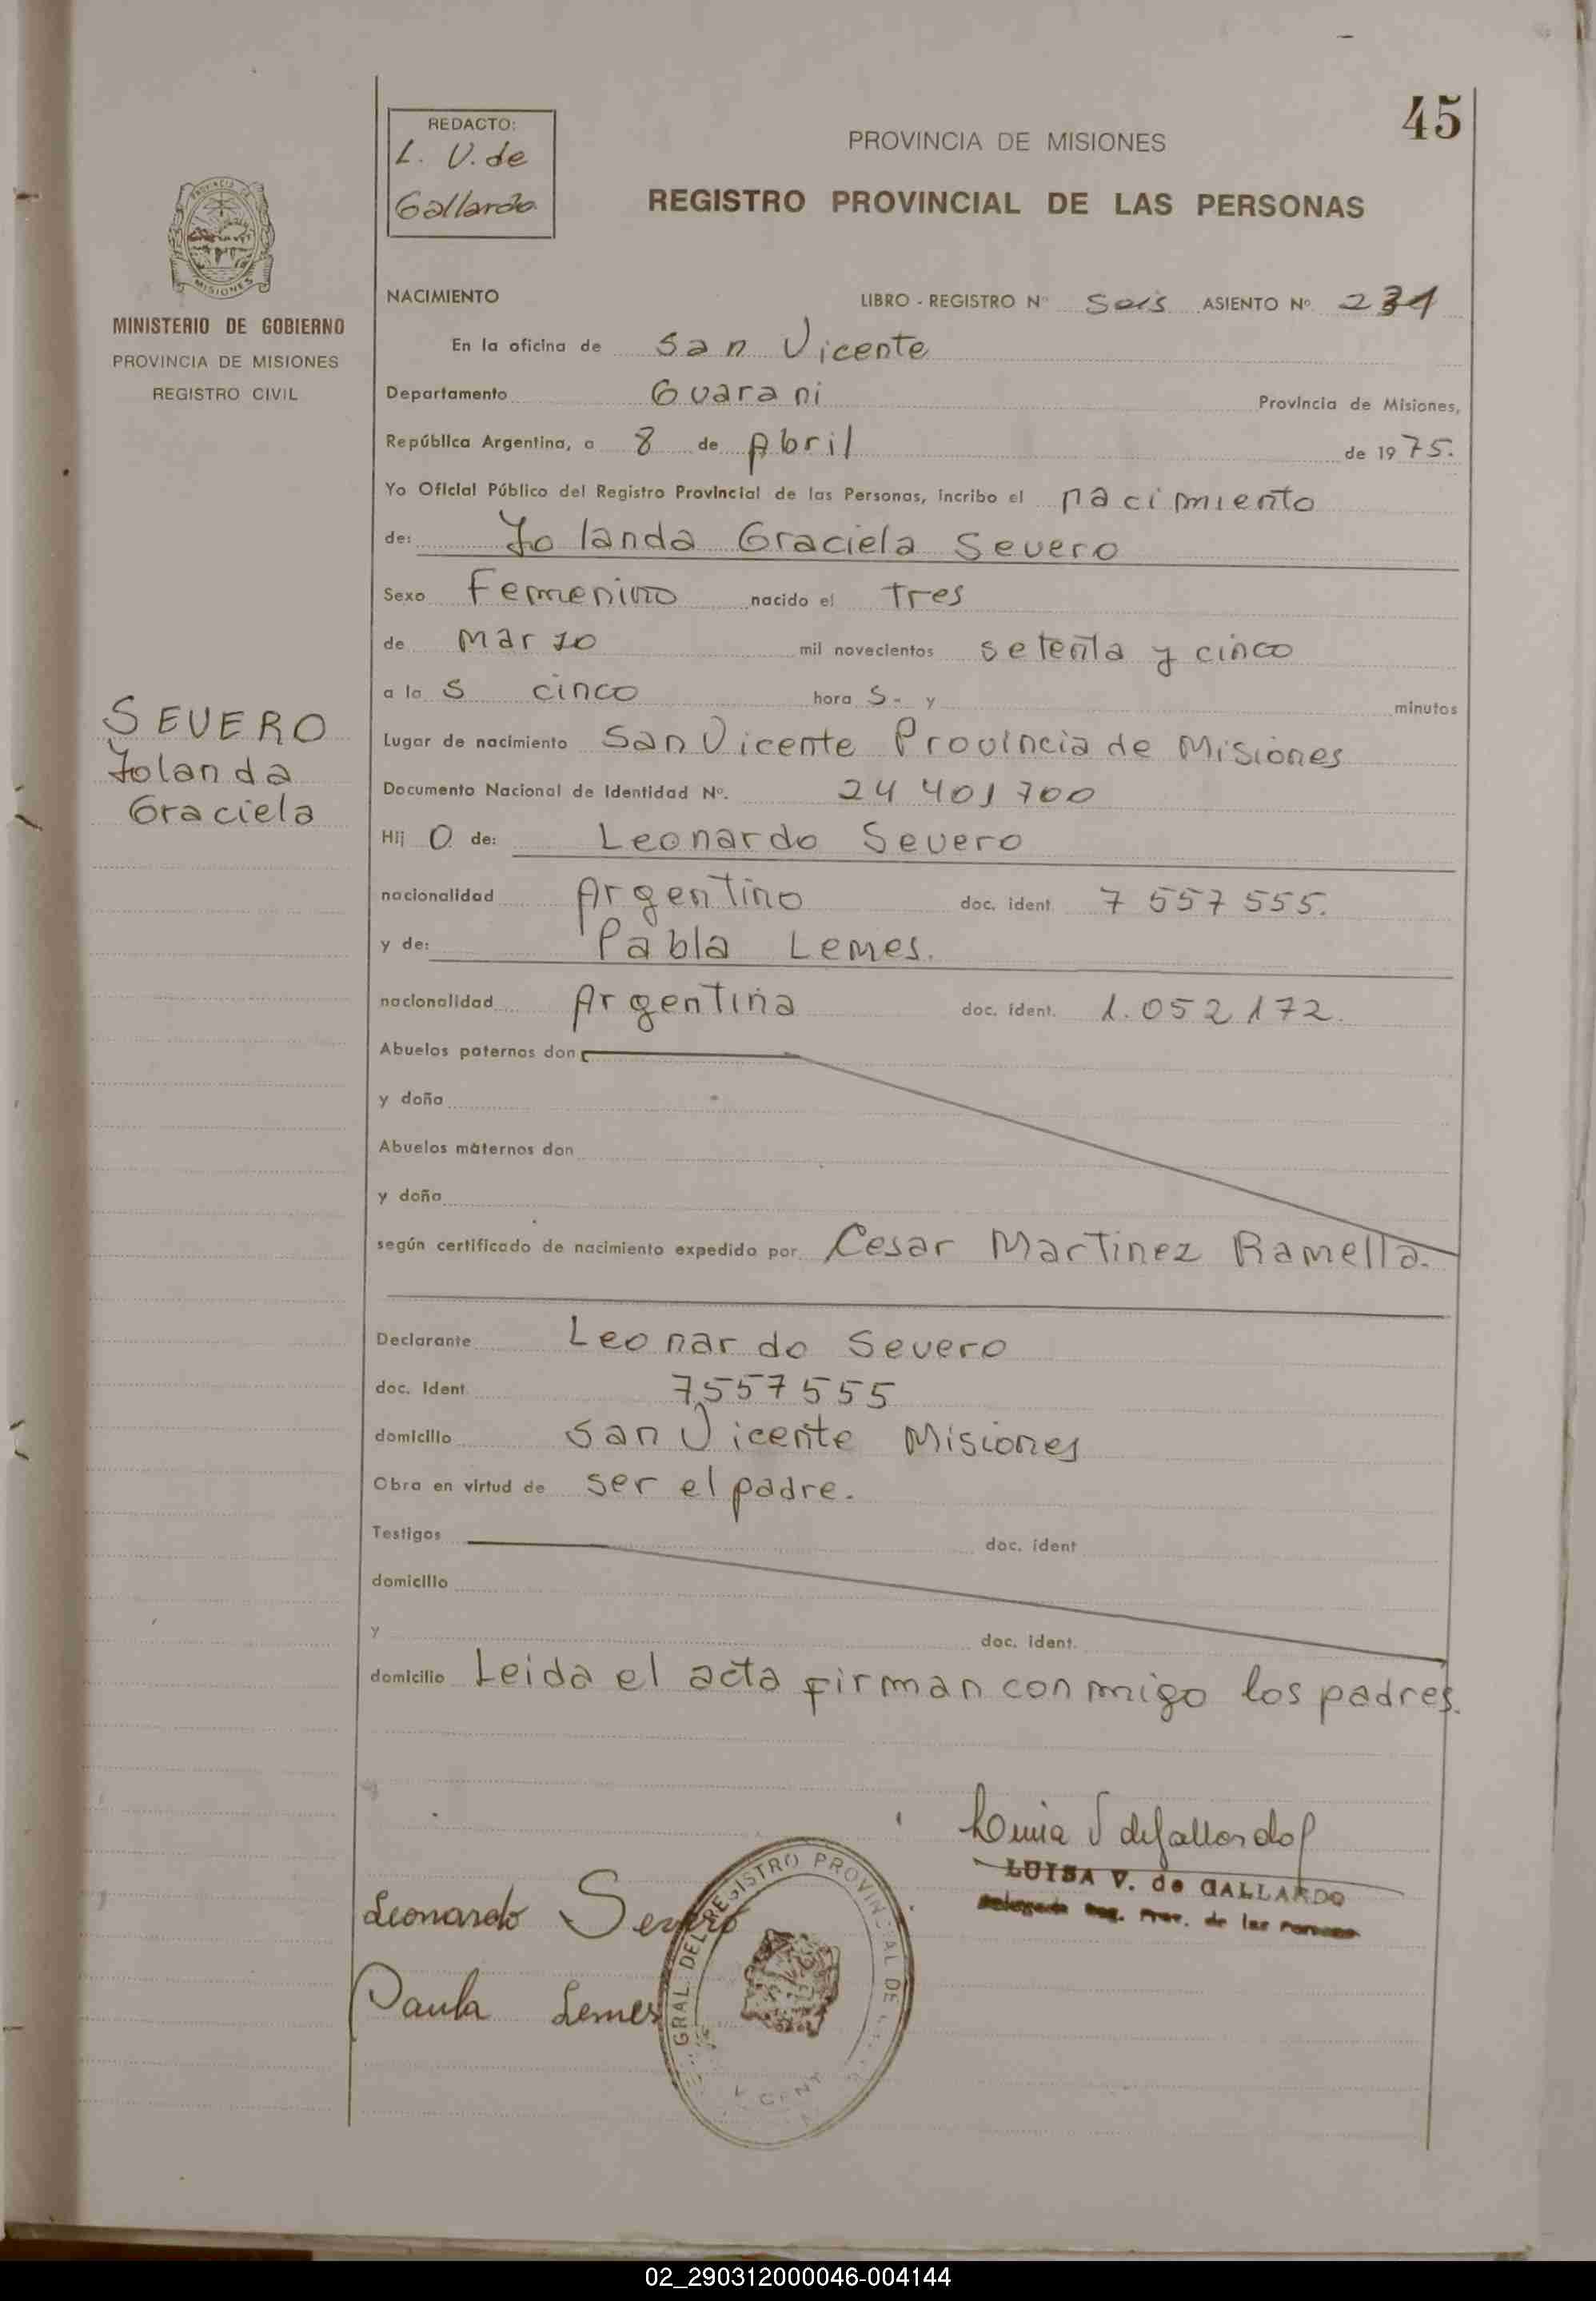 45
REDACTO:
L. V. de
Gallardo
PROVINCIA DE MISIONES
REGISTRO PROVINCIAL DE LAS PERSONAS
MISIONES
MINISTERIO DE GOBIERNO
PROVINCIA DE MISIONES
REGISTRO CIVIL
NACIMIENTO LIBRO - REGISTRO Nº Seis ASIENTO Nº 231
En la oficina de San Vicente
Departamento Guarani Provincia de Misiones,
República Argentina, a 8 de Abril de 1975.
Yo Oficial Público del Registro Provincial de las Personas, incribo el nacimiento
de: Yolanda Graciela Severo
Sexo Femenino nacido el Tres
de Marzo mil novecientos setenta y cinco
a las cinco horas- y minutos
SEVERO
Yolanda
Graciela
Lugar de nacimiento San Vicente Provincia de Misiones
Documento Nacional de Identidad Nº. 24 401 700
Hijo de: Leonardo Severo
nacionalidad Argentino doc. ident. 7 557 555.
y de: Pabla Lemes.
nacionalidad Argentina doc. ident. 1.052 172.
Abuelos paternos don
y doña
Abuelos maternos don
y doña
según certificado de nacimiento expedido por Cesar Martinez Ramella.
Declarante Leonardo Severo
doc. Ident 7.557 555
domicilio San Vicente Misiones
Obra en virtud de ser el padre.
Testigos doc. ident
domicilio
y doc. ident.
domicilio Leida el acta firman conmigo los padres.
Luisa V de Gallardo
LUISA V. de GALLARDO
Delegada Reg. Prov. de las Personas
Leonardo Severo
Paula Lemes
GRAL. DEL REGISTRO PROVINCIAL DE
02_290312000046-004144